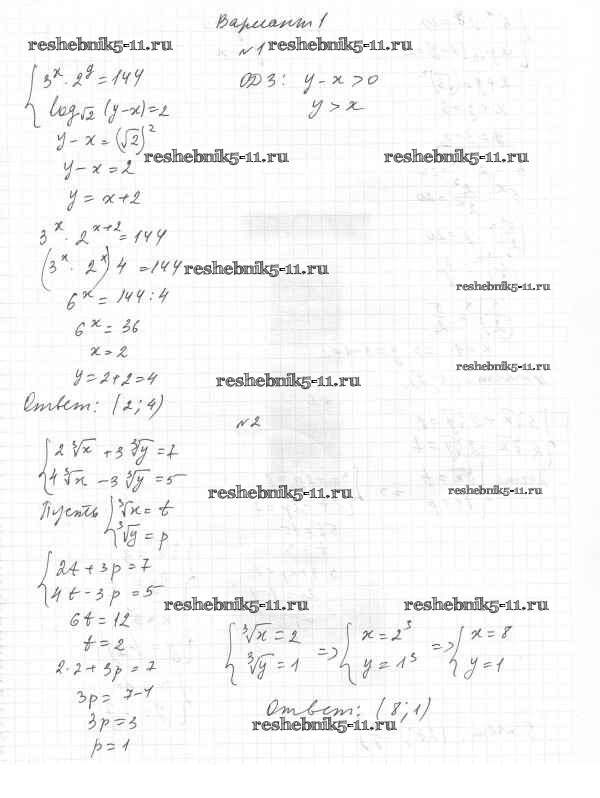 Вариант 1
reshebnik5-11.ru
№1 reshebnik5-11.ru
{ 3^x · 2^y = 144
log_√2 (y-x) = 2
ОДЗ: y-x>0
y>x
y-x = (√2)^2
reshebnik5-11.ru reshebnik5-11.ru
y-x = 2
y = x+2
3^x · 2^(x+2) = 144
(3^x · 2^x) 4 = 144 reshebnik5-11.ru
reshebnik5-11.ru
6^x = 144 : 4
6^x = 36
x = 2
reshebnik5-11.ru
y = 2+2 = 4
reshebnik5-11.ru
Ответ: (2; 4)
№2
{ 2 ∛x + 3 ∛y = 7
4 ∛x - 3 ∛y = 5
reshebnik5-11.ru reshebnik5-11.ru
Пусть { ∛x = t
∛y = p
{ 2t + 3p = 7
4t - 3p = 5
reshebnik5-11.ru reshebnik5-11.ru
6t = 12
t = 2
2·2 + 3p = 7
3p = 7-4
3p = 3
p = 1
{ ∛x = 2 => { x = 2^3 => { x = 8
∛y = 1 y = 1^3 y = 1
Ответ: (8; 1)
reshebnik5-11.ru